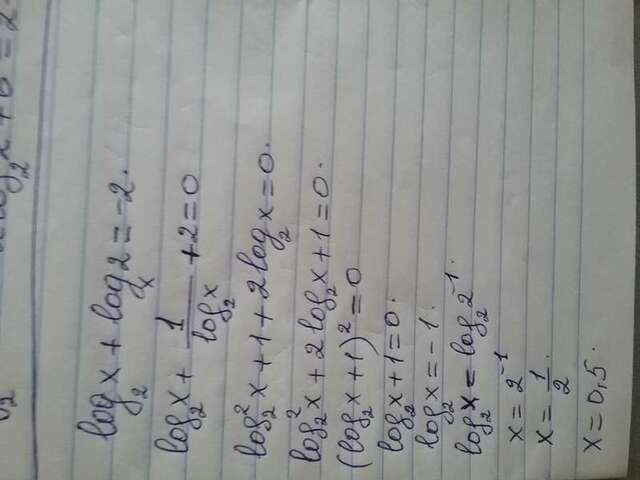 log₂x + 6 = 2
log₂x + logₓ2 = -2.
log₂x + 1/log₂x + 2 = 0
log₂²x + 1 + 2log₂x = 0.
log₂²x + 2log₂x + 1 = 0.
(log₂x + 1)² = 0
log₂x + 1 = 0.
log₂x = -1.
log₂x = log₂2⁻¹.
x = 2⁻¹
x = 1/2.
x = 0,5.